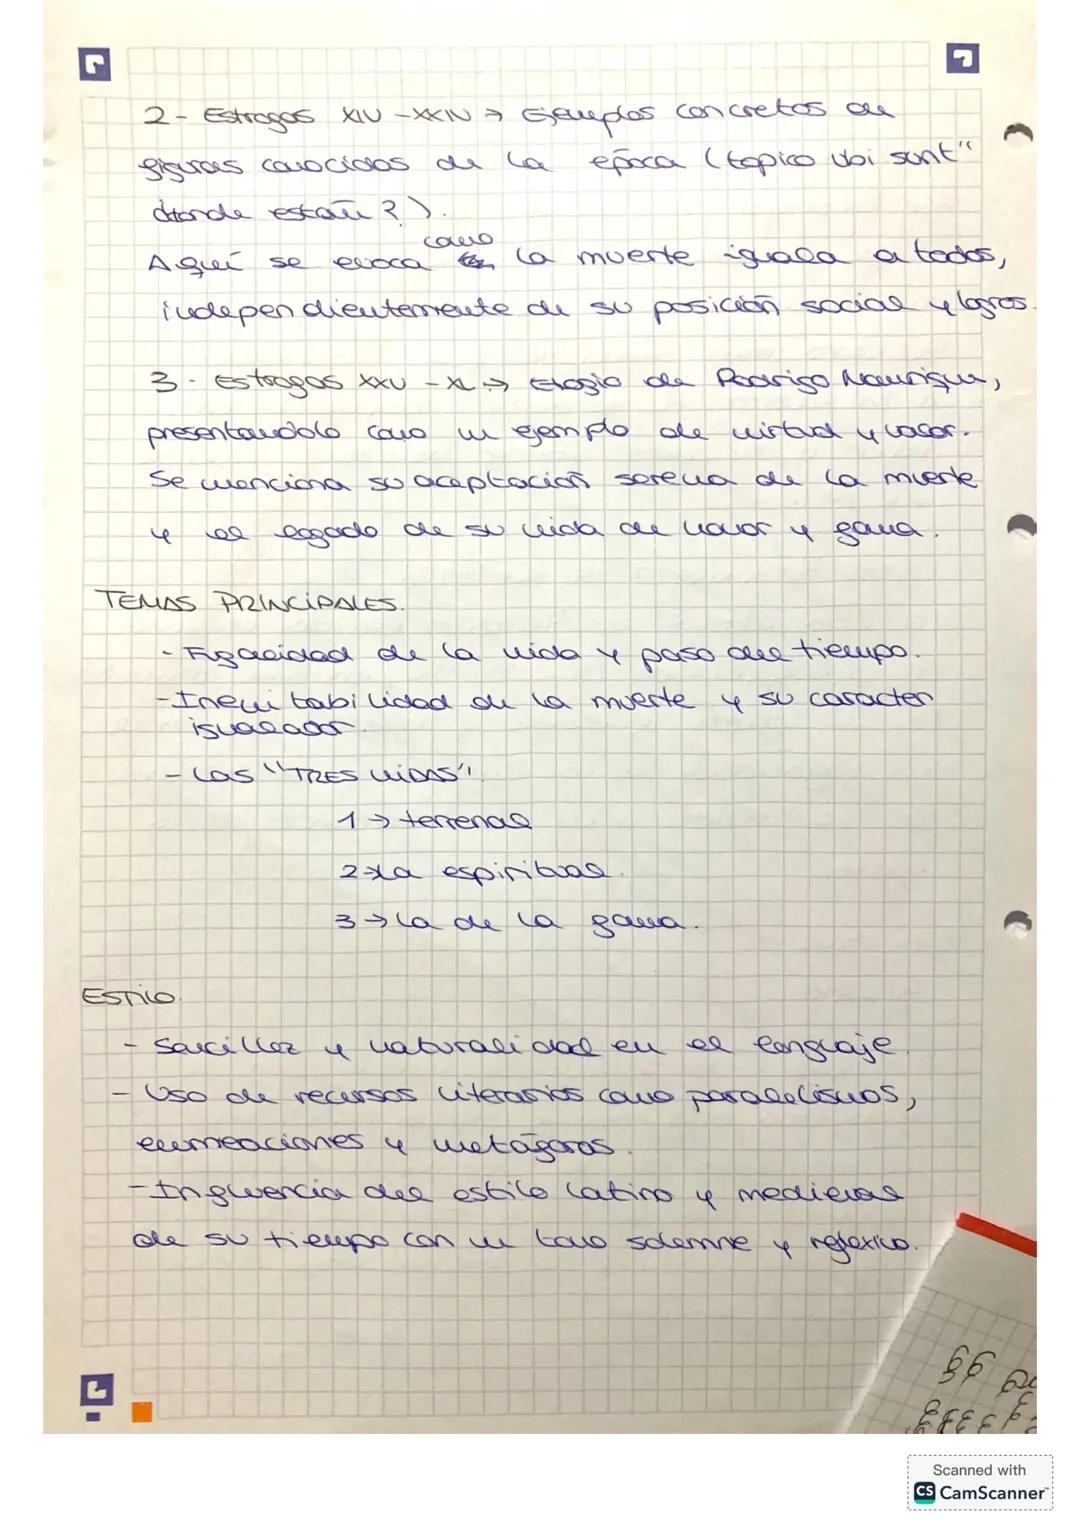 2- Estrofas XIV -XXIV → Ejemplos concretos de
figuras conocidas de la época (topico ubi sunt"
dtonde están?).
como
Aquí se evoca la muerte iguala a todos,
independientemente de su posición social y logros.
3- Estrofas XXV - XL → Elogio de Rodrigo Manrique,
presentandolo como un ejemplo de virtud y valor.
Se menciona su aceptación serena de la muerte
y el legado de su vida de honor y fama.
TEMAS PRINCIPALES.
- Fugacidad de la vida y paso del tiempo.
- Inevitabilidad de la muerte y su caracter
igualador.
- Las "TRES VIDAS".
1 → terrenal
2 → la espiritual.
3 → la de la fama.
ESTILO.
- Sencillez y naturalidad en el lenguaje.
- Uso de recursos literarios como paralelismos,
enumeaciones y metáforas.
- Influencia del estilo latino y medieval
de su tiempo con un tono solemne y reflexivo.
Scanned with
CS CamScanner